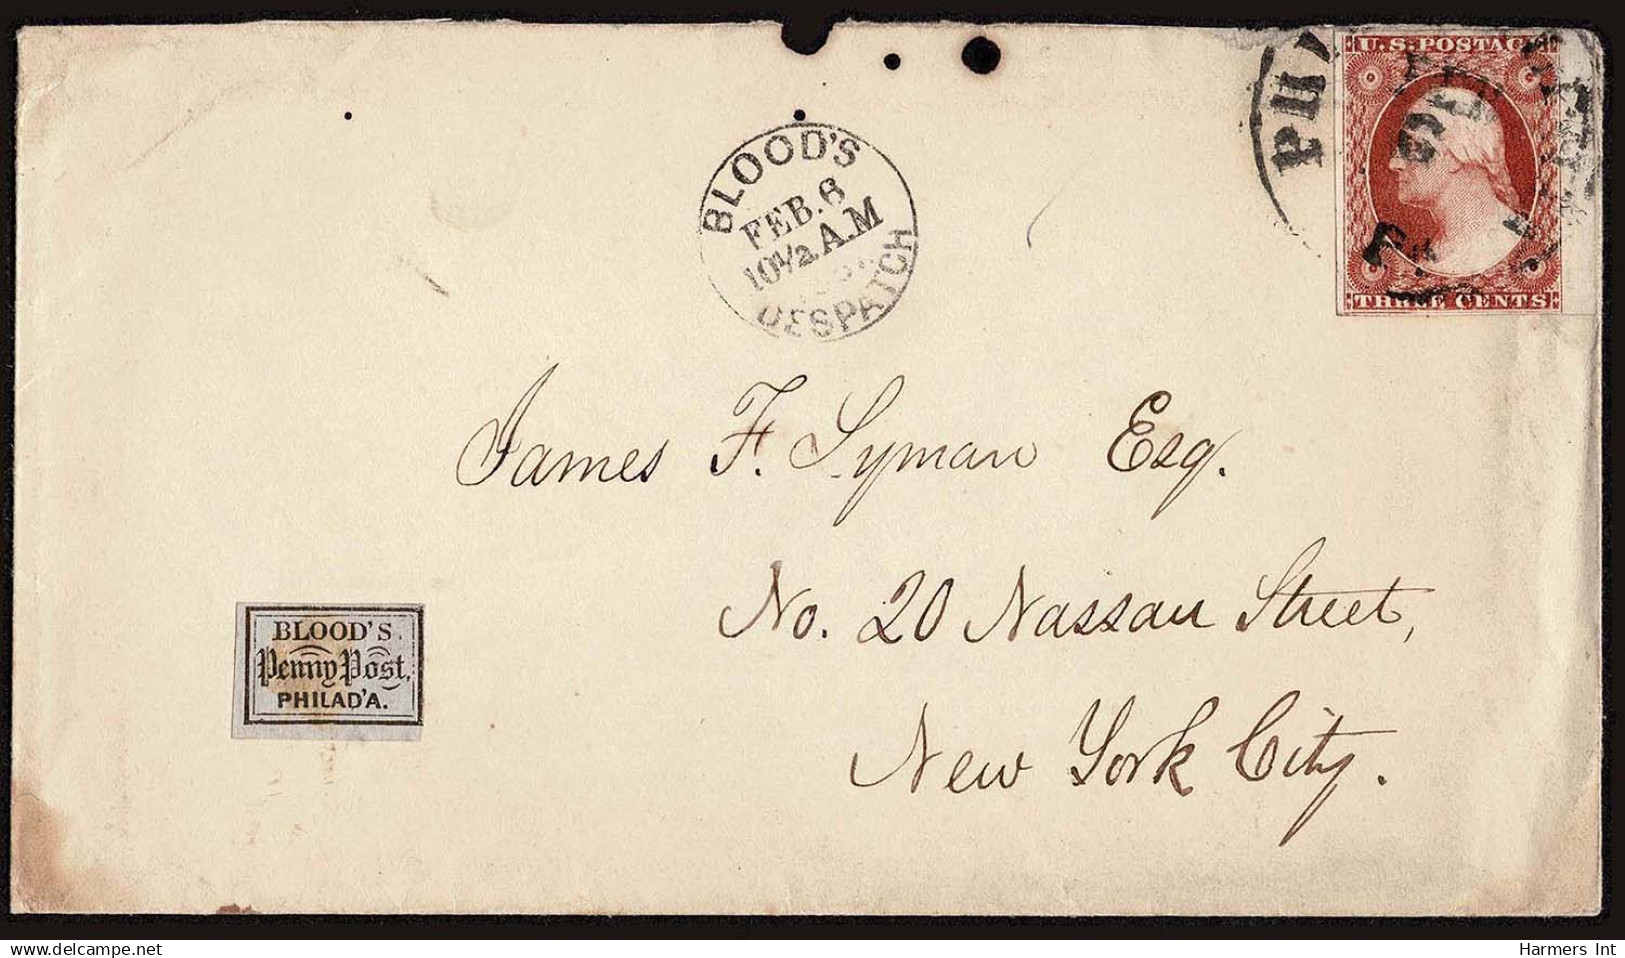 BLOOD'S
FEB. 6
10½ A.M
DESPATCH
PHI
U.S. POSTAGE
THREE CENTS
James F. Lyman Esq.
No. 20 Nassau Street,
New York City.
BLOOD'S
Penny Post,
PHILAD'A.
Harmers Int